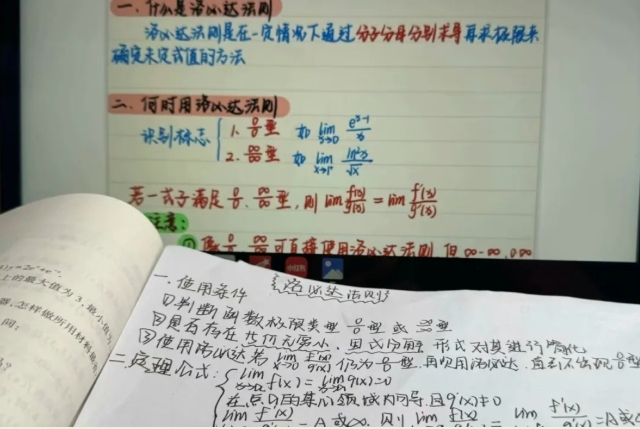 一.什么是洛必达法则
洛必达法则是在一定情况下通过分子分母分别求导再求极限来
确定未定式值的方法
二.何时用洛必达法则
识别标志 { 1. 0/0 型 如 lim x→0 (e^x-1)/x
2. ∞/∞ 型 如 lim
若一式子满足 0/0. ∞/∞ 型,则 lim f(x)/g(x) = lim f'(x)/g'(x)
注意:
① 像 0/0 ∞/∞ 可直接使用洛必达法则 但 ∞-∞, 0·∞
上的最大值为3,最小值为
怎样做所用材料最
问:
《洛必达法则》
一.使用条件
①判断函数极限类型 0/0型 或 ∞/∞型
②是否存在等价无穷小、因式分解 形式对其进行简化
③使用洛必达若 lim x→0 f'(x)/g'(x) 仍为 0/0型,再次用洛必达,直到不为
二.定理公式: { lim f(x) = lim g(x) = 0
在点 的某 领域内可导,且g'(x)≠0
lim f'(x) = A或∞, 则 lim f(x) = lim f'(x)/g'(x) = A或